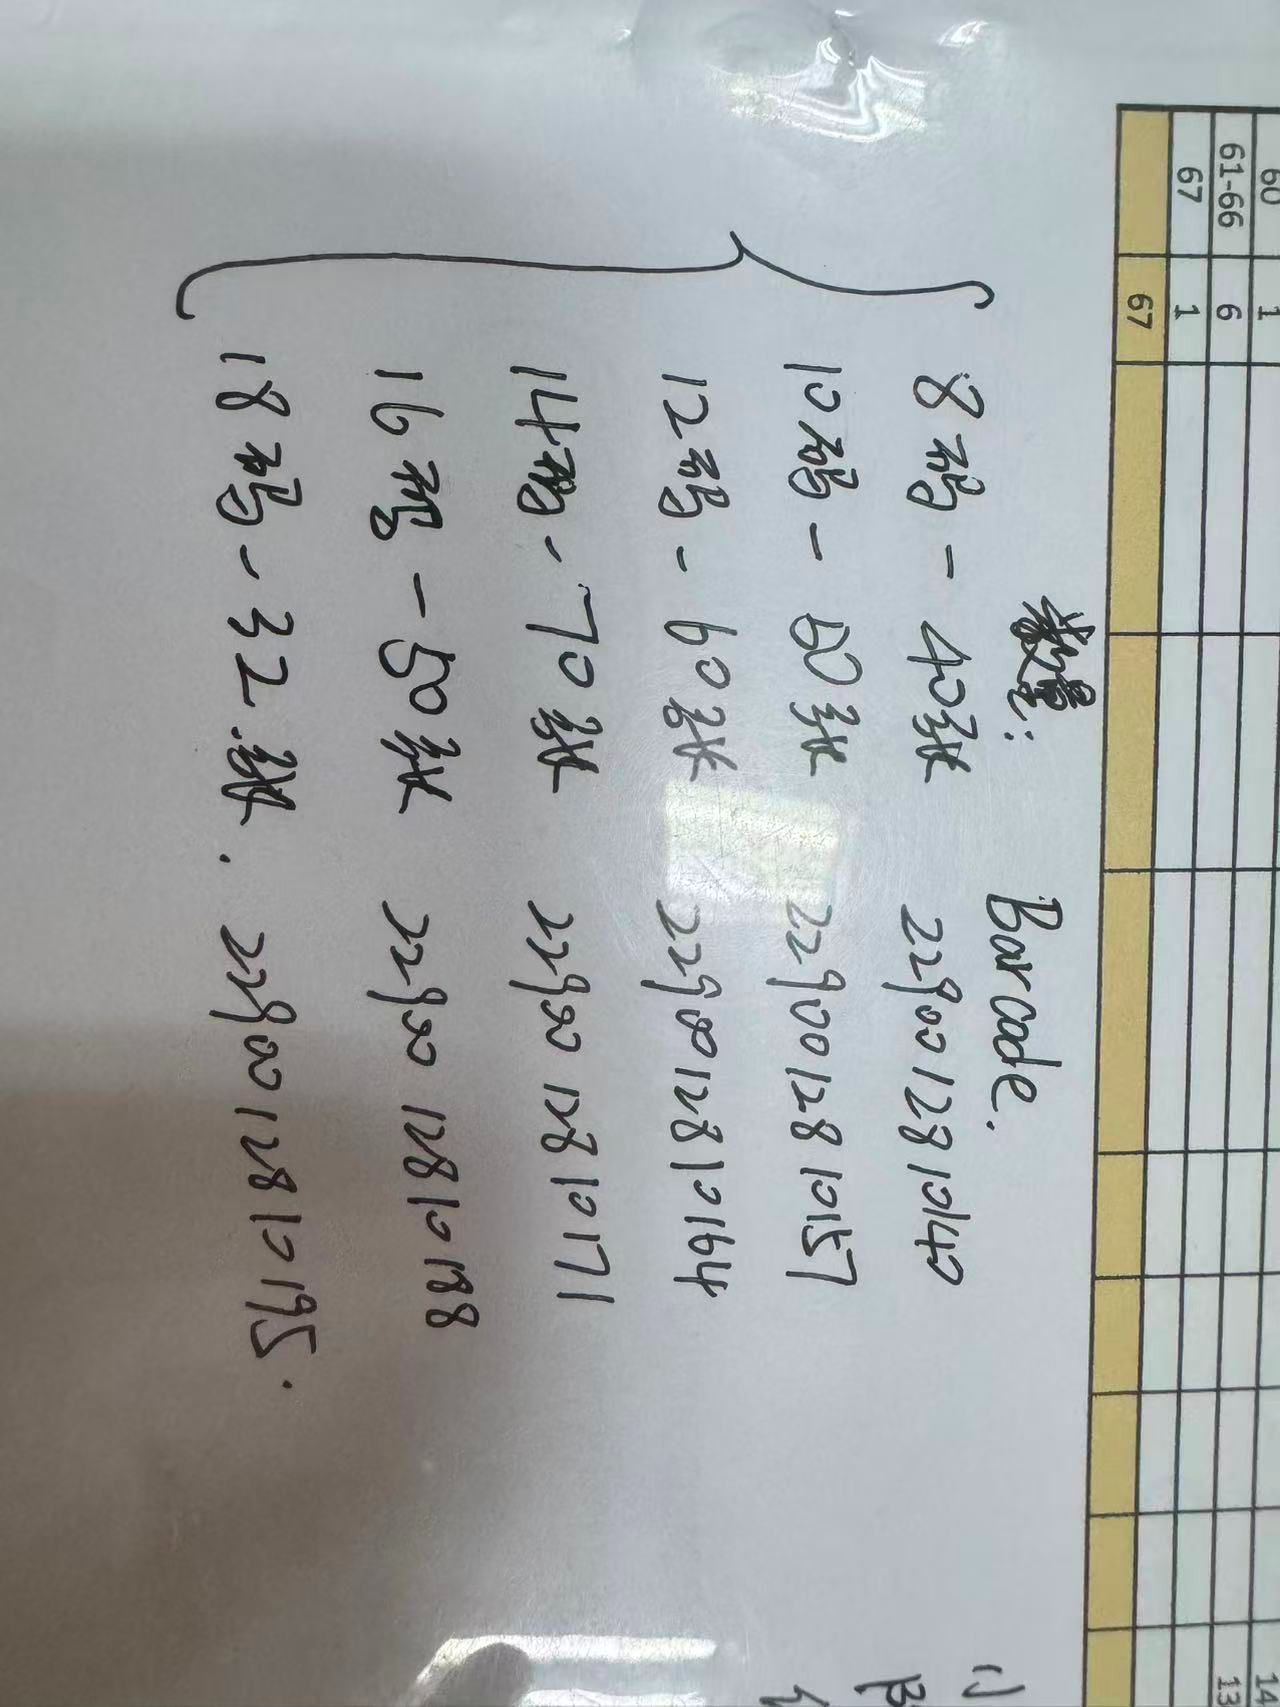 60 1
61-66 6
67 1
67
数量: Barcode.
8码-40张 2290012810140
10码-50张 2290012810157
12码-60张 2290012810164
14码-70张 2290012810171
16码-50张 2290012810188
18码-32张. 2290012810195.